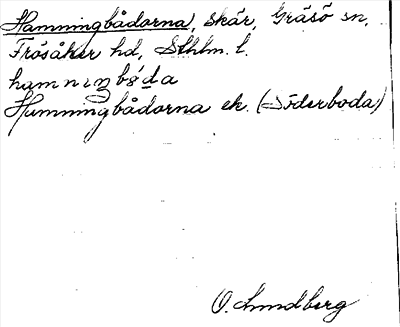 Hamningbådorna, skär, Gräsö sn,
Frösåker hd, Sthlm. l.
Hamningbådorna ek. (Söderboda)
O. Lundberg